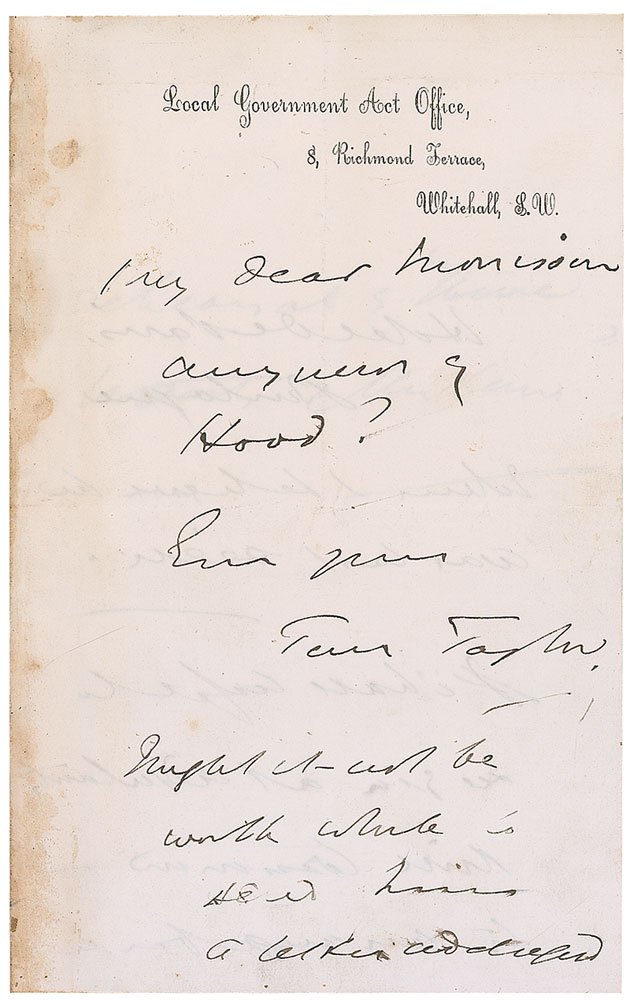 Local Government Act Office,
8, Richmond Terrace,
Whitehall, S.W.
My dear Morrison
any news of
Hood?
Ever yours
Tom Taylor
Might it not be
worth while to
send home
a letter addressed